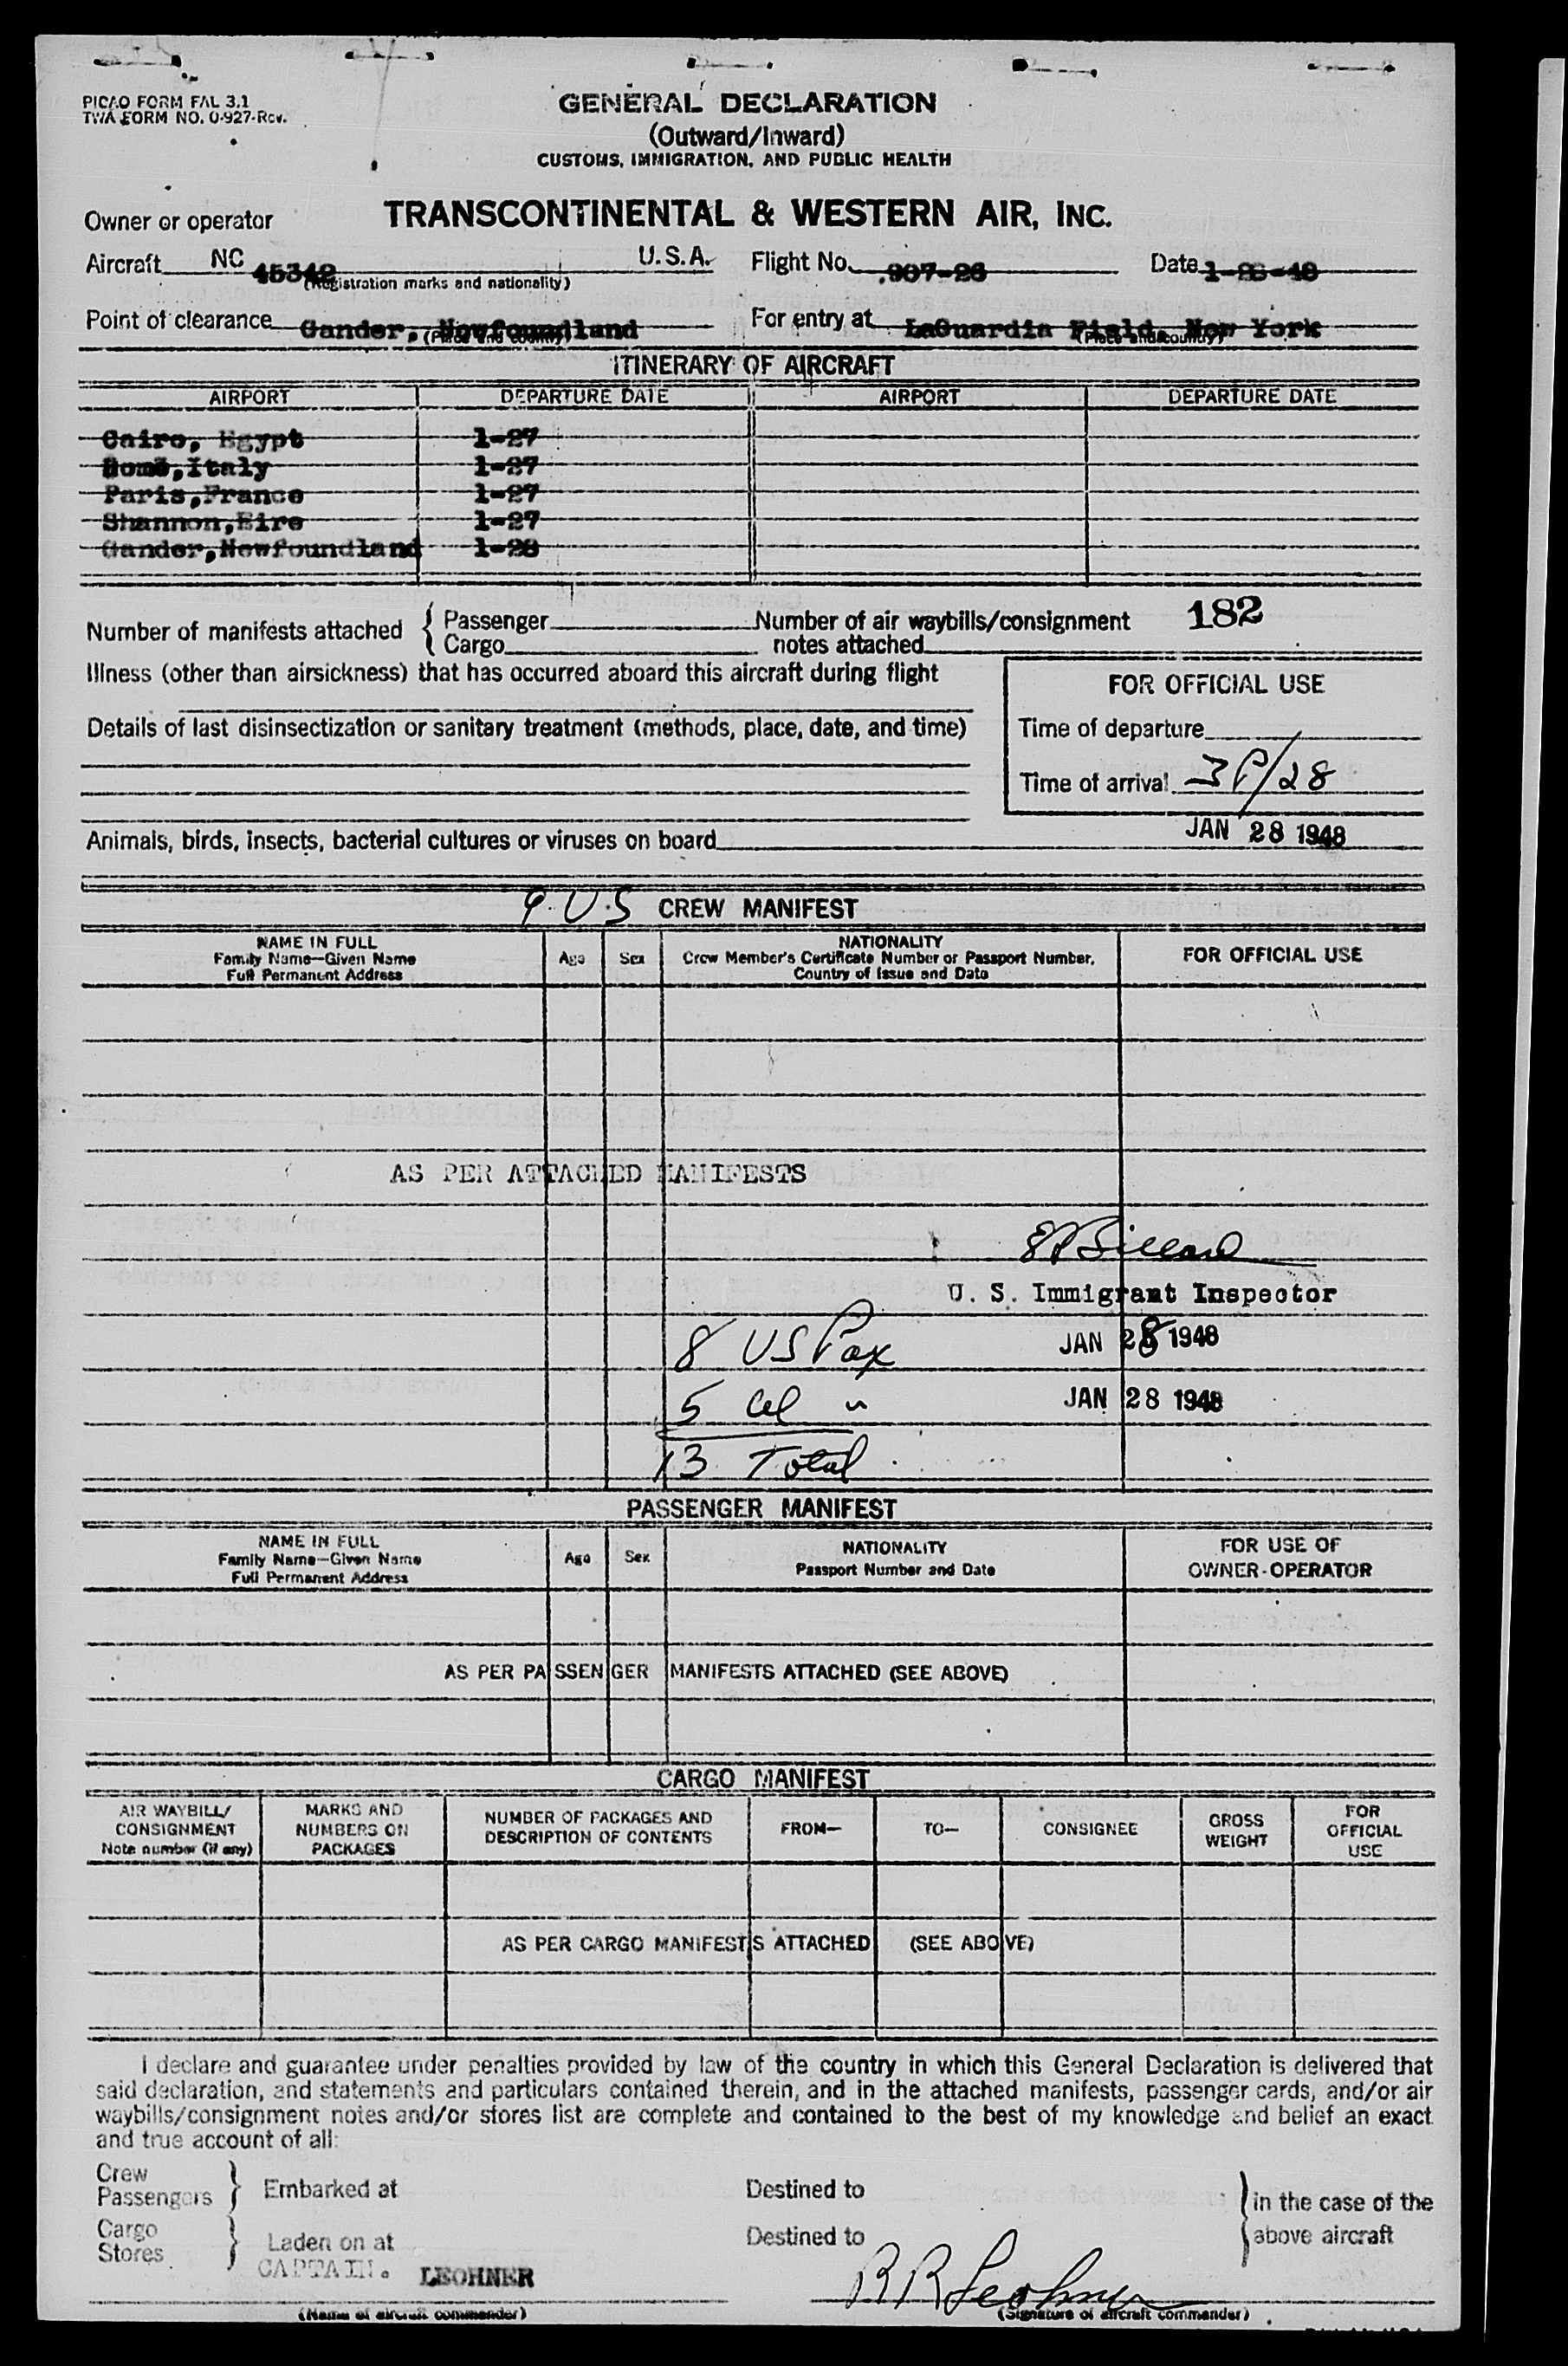 PICAO FORM FAL 3.1
TWA FORM NO. O-927-Rev.
GENERAL DECLARATION
(Outward/Inward)
CUSTOMS, IMMIGRATION, AND PUBLIC HEALTH
Owner or operator TRANSCONTINENTAL & WESTERN AIR, INC.
Aircraft NC 45342 U.S.A. Flight No. 907-26 Date 1-26-48
(Registration marks and nationality)
Point of clearance Gander, Newfoundland For entry at LaGuardia Field, New York
(Place and country) (Place and country)
ITINERARY OF AIRCRAFT
AIRPORT DEPARTURE DATE AIRPORT DEPARTURE DATE
Cairo, Egypt 1-27
Rome,Italy 1-27
Paris,France 1-27
Shannon,Eire 1-27
Gander,Newfoundland 1-28
Number of manifests attached { Passenger Number of air waybills/consignment 182
Cargo notes attached
Illness (other than airsickness) that has occurred aboard this aircraft during flight
FOR OFFICIAL USE
Details of last disinsectization or sanitary treatment (methods, place, date, and time)
Time of departure
Time of arrival 3P/28
Animals, birds, insects, bacterial cultures or viruses on board JAN 28 1948
9 U.S CREW MANIFEST
NAME IN FULL
Family Name—Given Name
Full Permanent Address
Age Sex
NATIONALITY
Crew Member's Certificate Number or Passport Number,
Country of Issue and Date
FOR OFFICIAL USE
AS PER ATTACHED MANIFESTS
U. S. Immigrant Inspector
8 US Pax JAN 28 1948
5 JAN 28 1948
13 Total
PASSENGER MANIFEST
NAME IN FULL
Family Name—Given Name
Full Permanent Address
Age Sex
NATIONALITY
Passport Number and Date
FOR USE OF
OWNER-OPERATOR
AS PER PASSENGER MANIFESTS ATTACHED (SEE ABOVE)
CARGO MANIFEST
AIR WAYBILL/
CONSIGNMENT
Note number (if any)
MARKS AND
NUMBERS ON
PACKAGES
NUMBER OF PACKAGES AND
DESCRIPTION OF CONTENTS
FROM—
TO—
CONSIGNEE
GROSS
WEIGHT
FOR
OFFICIAL
USE
AS PER CARGO MANIFESTS ATTACHED (SEE ABOVE)
I declare and guarantee under penalties provided by law of the country in which this General Declaration is delivered that
said declaration, and statements and particulars contained therein, and in the attached manifests, passenger cards, and/or air
waybills/consignment notes and/or stores list are complete and contained to the best of my knowledge and belief an exact
and true account of all:
Crew
Passengers } Embarked at Destined to
Cargo
Stores } Laden on at Destined to
} in the case of the
above aircraft
CAPTAIN. LEOHNER R R Leohner
(Name of aircraft commander) (Signature of aircraft commander)